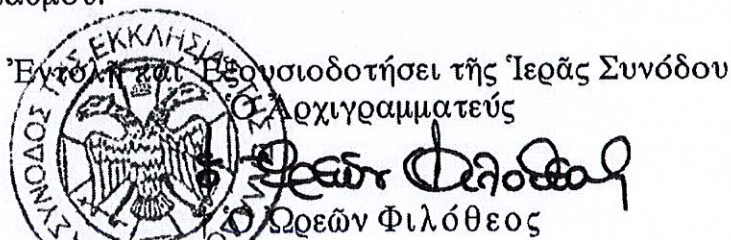 Ἐντολῇ καὶ Ἐξουσιοδοτήσει τῆς Ἱερᾶς Συνόδου
Ὁ Ἀρχιγραμματεύς
† Ὠρεῶν Φιλόθεος
Ὁ Ὠρεῶν Φιλόθεος
ΣΥΝΟΔΟΣ ΤΗΣ ΕΚΚΛΗΣΙΑΣ ΤΗΣ